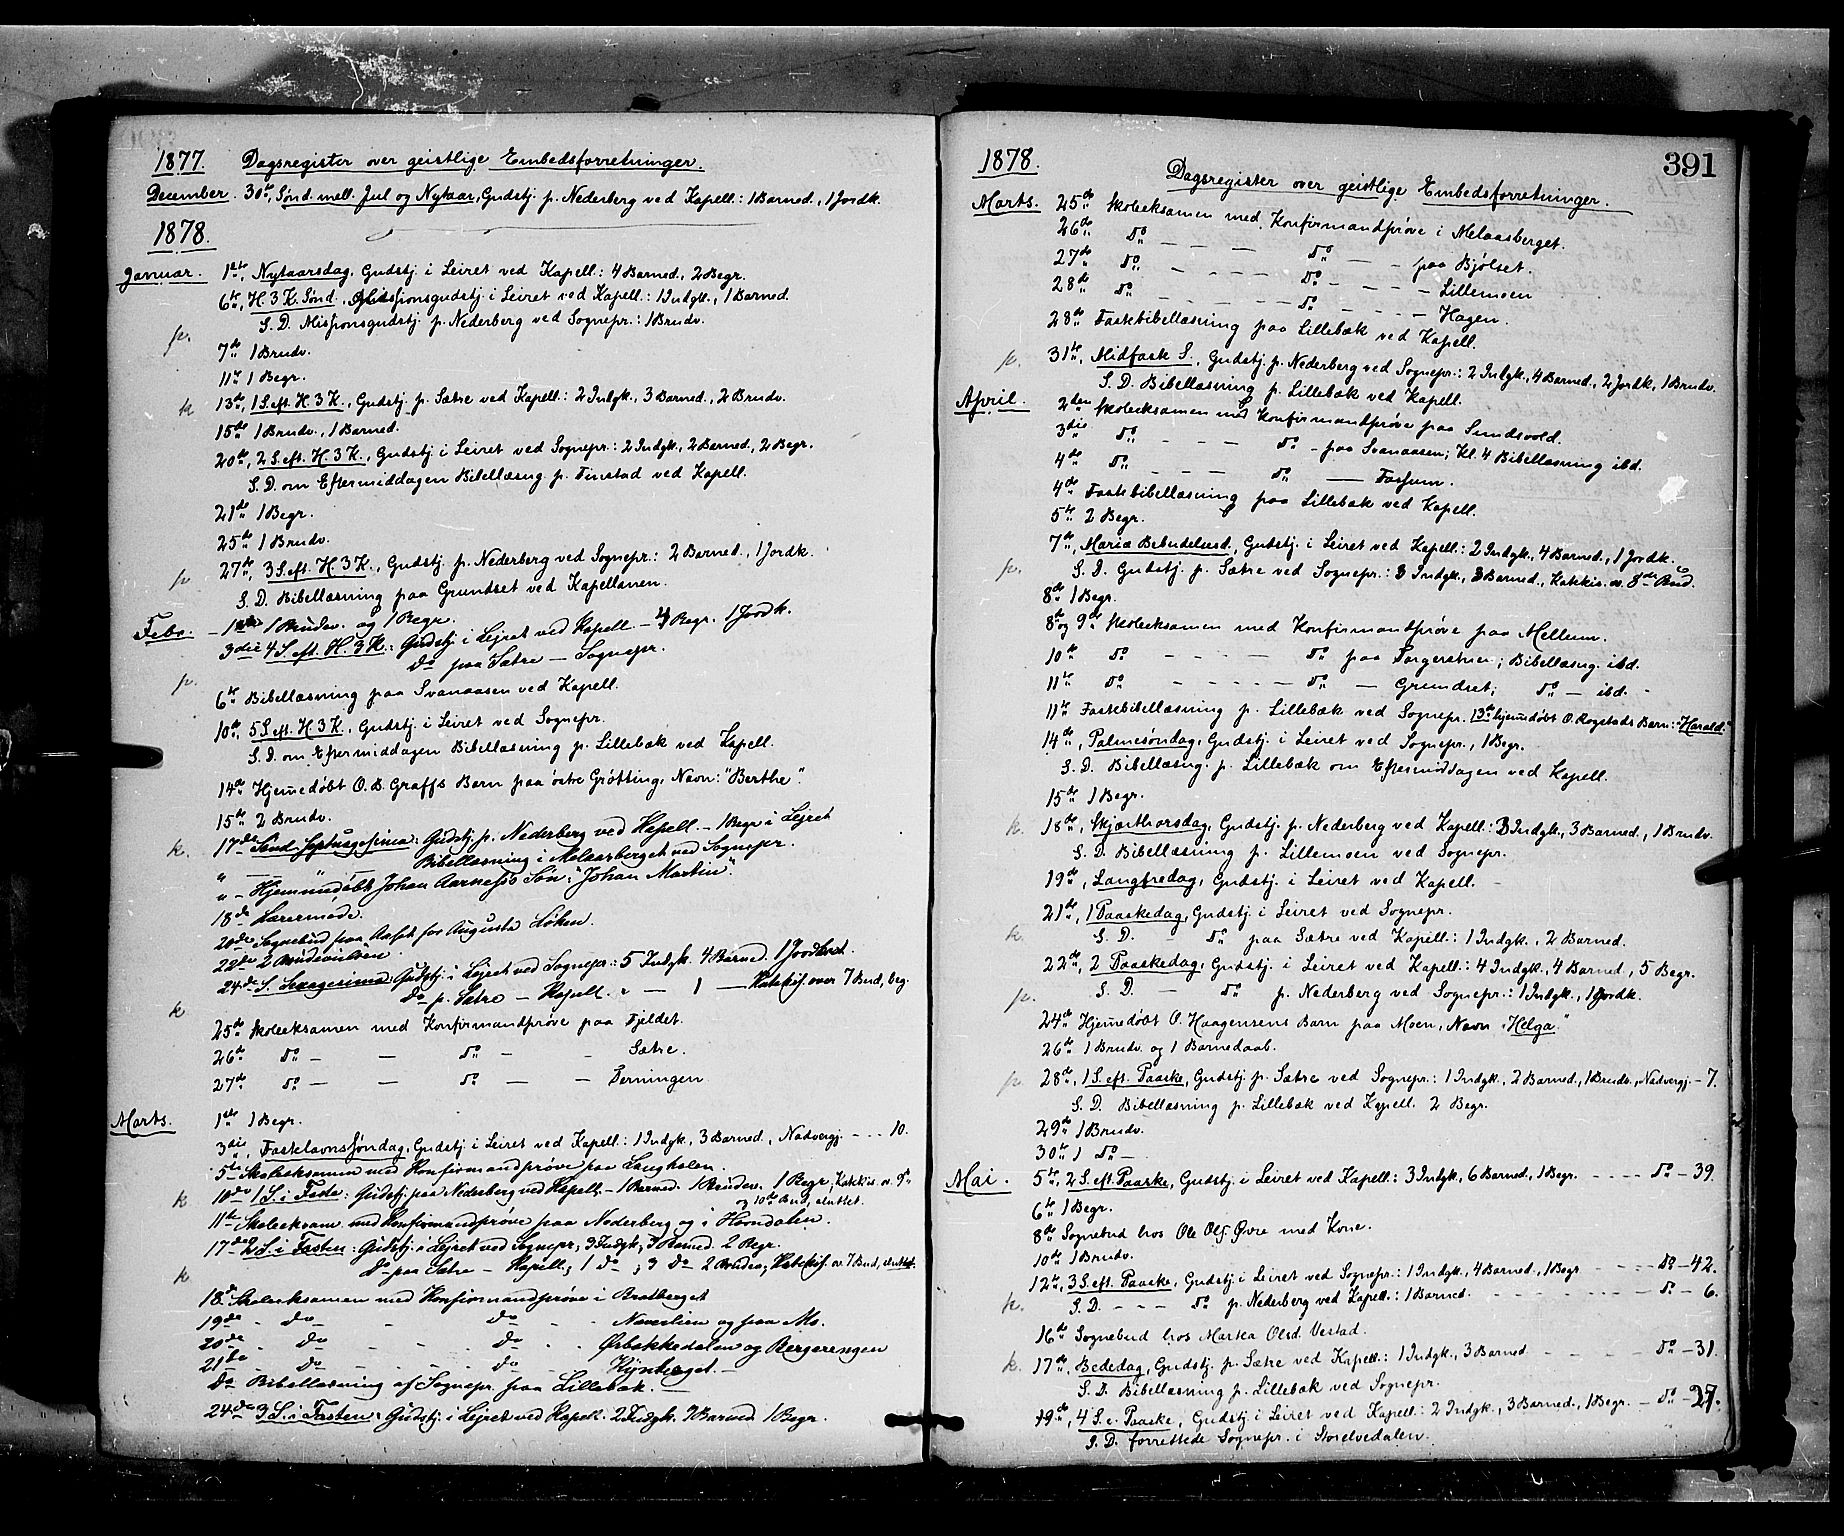 1877. Dagsregister over geistlige Embedsforretninger.
December. 30te, Sønd. mell. Jul og Nytaar, Gudstj. p. Nederberg ved Kapell.: 1 Barned., 1 Jordk.
1878.
Januar. 1ste, Nytaarsdag, Gudstj. i Leiret ved Kapell.: 4 Barned., 2 Begr.
6te, H. 3 K. Sønd., Missionsgudstj. i Leiret ved Kapell.: 1 Indgk., 1 Barned.
p. S. D. Missionsgudstj. p. Nederberg ved Sognepr.: 1 Brudv.
7de 1 Brudv.
11te 1 Begr.
k 13de, 1 S. eft. H. 3 K., Gudstj. p. Sætre ved Kapell.: 2 Indgk., 3 Barned., 2 Brudv.
15de 1 Brudv., 1 Barned.
20de, 2 S. eft. H. 3 K., Gudstj. i Leiret ved Sognepr.: 2 Indgk., 2 Barned., 2 Begr.
S. D. om Eftermiddagen Bibellæsng. p. Finstad ved Kapell.
21de 1 Begr.
25de 1 Brudv.
p 27de, 3 S. eft. H. 3 K., Gudstj. p. Nederberg ved Sognepr.: 2 Barned., 1 Jordk.
S. D. Bibellæsning paa Grundset ved Kapellanen.
Febr. 1ste 1 Brudev. og 1 Begr.
3die 4 S. eft. H. 3 K.: Gudstj. i Lejret ved Kapell. – 4 Begr. 1 Jordk.
p. do paa Sætre – Sognepr.
6te Bibellæsning paa Svanaasen ved Kapell.
10de, 5 S. eft. H. 3 K., Gudstj. i Leiret ved Sognepr.
S. D. om Eftermiddagen Bibellæsning p. Lillebæk ved Kapell.
14de Hjemedøbt O. B. Graffs Barn paa østre Grøtting, Navn: "Berthe".
15de 2 Brudv.
k. 17de Sønd. Septuagesima: Gudstj. p. Nederberg ved Kapell. – 1 Begr. i Lejret
" — — Bibellæsning i Melaasberget ved Sognepr.
" – Hjemmedøbt Johan Aarness's Søn: "Johan Martin".
18de Læremøde.
20de Sognebud paa Aaset for Augusta Løken.
22de 2 Brudevielser
24de S. Sexagesima Gudstj. i Lejret ved Sognepr.: 5 Indgk. 4 Barned. 1 Jordkast.
k do p. Sætre – Kapell. " — 1 — Katekis. over 7 Bud, beg.
25de Skoleeksamen med Konfirmandprøve paa Fjeldet.
26de do – — do – – Sætre.
27de do — — do — — Terningen
Marts. 1ste 1 Begr.
3die, Fastelavnssøndag, Gudstj. i Leiret ved Kapell.: 1 Indgk., 3 Barned., Nadvergj. - - - 10.
5te Skoleeksamen med Konfirmandprøve paa Langholen.
k 10de 1 S. i Faste: Gudstj. paa Nederberg ved Kapell. – 1 Barned. 1 Brudev. 1 Begr., Katekis. ov. 9de
og 10de Bud, sluttet.
11te Skoleeksam. med Konfirmandprøve paa Nederberg og i Horndalen.
17de 2 S. i Fasten: Gudstj. i Lejret ved Sognepr.; 3 Indgk.; 3 Barned. 2 Begr.
k do paa Sætre – Kapell.; 1 do; 3 do 2 Brudev.; Katekis. ov. 7 Bud, sluttet.
18de Skoleeksamen med Konfirmandprøve i Bratberget
19de - do - - do - - Noverlien og paa Mo.
20de - do - - do - - Ørbækkedalen og Bergerengen
21de - do - - do - - Kynberget. –
do Bibellæsning af Sognepr. paa Lillebæk. —
24de 3 S. i Fasten: Gudstj. i Lejret ved Kapell. 2 Indgk. 3 Barned. 1 Begr.
391
1878. Dagsregister over geistlige Embedsforretninger.
Marts. 25de Skoleeksamen med Konfirmandprøve i Melaasberget.
26de do – — — do – – paa Bjølset.
27de do – – – – do – – – – Lillemoen
28de do – – – – – do – – – – Hagen.
28de Fastebibellæsning paa Lillebæk ved Kapell.
p. 31te, Midfaste S., Gudstj. p. Nederberg ved Sognepr.: 2 Indgk., 4 Barned., 2 Jordk., 1 Brudv.
S. D. Bibellæsning p. Lillebæk ved Kapell.
April. 2den Skoleeksamen med Konfirmandprøve paa Sundsvold.
3die do – – – do – paa Svanaasen; Kl. 4 Bibellæsning ibd.
4de do – – – do — Fossum.
4de Fastebibellæsning paa Lillebæk ved Kapell.
5te 2 Begr.
7de, Maria Bebudelsesd., Gudstj. i Leiret ved Kapell.: 2 Indgk., 4 Barned., 1 Jordk.
p. S. D. Gudstj. p. Sætre ved Sognepr.: 3 Indgk., 3 Barned., Katekis. ov. 8de Bud.
8de 1 Begr.
8de og 9de Skoleeksamen med Konfirmandprøve paa Mellum.
10de do – – – – do paa Torgerstuen; Bibellæsng. ibd.
11te do – – – – do – Grundset; do – ibd. -
11te Fastebibellæsning p. Lillebæk ved Sognepr. 13de hjemedøbt O. Rogstads Barn: "Harald."
14de, Palmesøndag, Gudstj. i Leiret ved Sognepr., 1 Begr.
S. D. Bibellæsng. p. Lillebæk om Eftermiddagen ved Kapell.
15de 1 Begr.
k. 18de, Skjærthorsdag, Gudstj. p. Nederberg ved Kapell.: 3 Indgk., 3 Barned., 1 Brudv.
S. D. Bibellæsning p. Lillemoen ved Sognepr.
19de, Langfredag, Gudstj. i Leiret ved Kapell. –
21de, 1 Paaskedag, Gudstj. i Leiret ved Sognepr.
k. S. D. - do paa Sætre ved Kapell.: 1 Indgk., 2 Barned.
22de, 2 Paaskedag, Gudstj. i Leiret ved Kapell.: 4 Indgk., 4 Barned., 5 Begr.
p. S. D. – do p. Nederberg ved Sognepr.: 1 Indgk., 1 Jordk.
24de Hjemedøbt O. Haagensens Barn paa Moen, Navn "Helga."
26de 1 Brudv. og 1 Barnedaab.
p. 28de, 1 S. eft. Paaske, Gudstj. p. Sætre ved Sognepr.: 1 Indgk., 2 Barned., 1 Brudv., Nadvergj. – 7.
S. D. Bibellæsning p. Lillebæk ved Kapell. 2 Begr.
29de 1 Brudv.
30te 1 do –
Mai. 5te, 2 S. eft. Paaske, Gudstj. i Leiret ved Kapell.: 3 Indgk., 6 Barned., 1 Begr. - - - - do – 39.
6te 1 Begr.
8de Sognebud hos Ole Ols. Øvre med Kone.
10de 1 Brudv.
12te, 3 S. eft. Paaske, Gudstj. i Leiret ved Sognepr.: 1 Indgk., 4 Barned., 1 Begr - - - - do – 42.
k. S. D. – – – do p. Nederberg ved Kapell.: 1 Barned. - - - - - - - - do – 6.
16de Sognebud hos Marta Olsd. Vestad.
k. 17de, Bededag, Gudstj. p. Sætre ved Kapell.: 1 Indgk., 3 Barned - - - - - do – 31.
S. D. Bibellæsning p. Lillebæk ved Sognepr.
19de, 4 S. e. Paaske, Gudstj. i Leiret ved Kapell.: 2 Indgk., 3 Barned., 1 Begr. – do – 27.
S. D. forrettede Sognepr. i Storelvedalen.